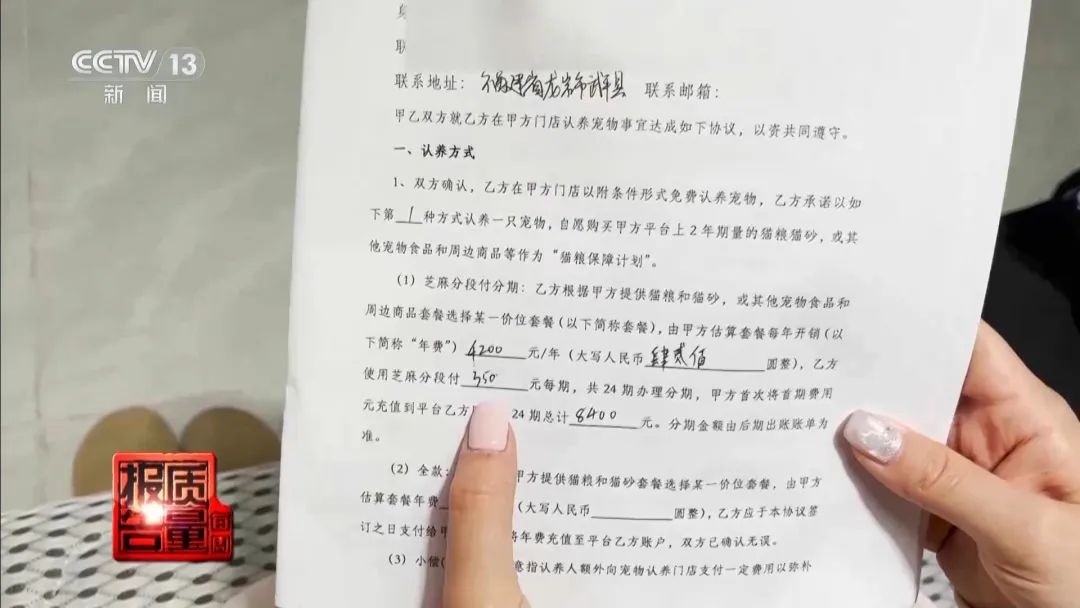 CCTV 13
新闻
联系地址：福建省龙岩市武平县 联系邮箱：
甲乙双方就乙方在甲方门店认养宠物事宜达成如下协议，以资共同遵守。
一、认养方式
1、双方确认，乙方在甲方门店以附条件形式免费认养宠物，乙方承诺以如
下第1种方式认养一只宠物，自愿购买甲方平台上2年期量的猫粮猫砂，或其
他宠物食品和周边商品等作为“猫粮保障计划”。
（1）芝麻分段付分期：乙方根据甲方提供猫粮和猫砂，或其他宠物食品和
周边商品套餐选择某一价位套餐（以下简称套餐），由甲方估算套餐每年开销（以
下简称“年费”）4200元/年（大写人民币肆贰佰圆整），乙方
使用芝麻分段付350元每期，共24期办理分期，甲方首次将首期费用
元充值到平台乙方 24期总计8400元。分期金额由后期出账账单为
准。
（2）全款： 甲方提供猫粮和猫砂套餐选择某一价位套餐，由甲方
估算套餐年费 （大写人民币 圆整），乙方应于本协议签
订之日支付给甲 将年费充值至平台乙方账户，双方已确认无误。
（3）小 意指认养人额外向宠物认养门店支付一定费用以弥补
质量
报告